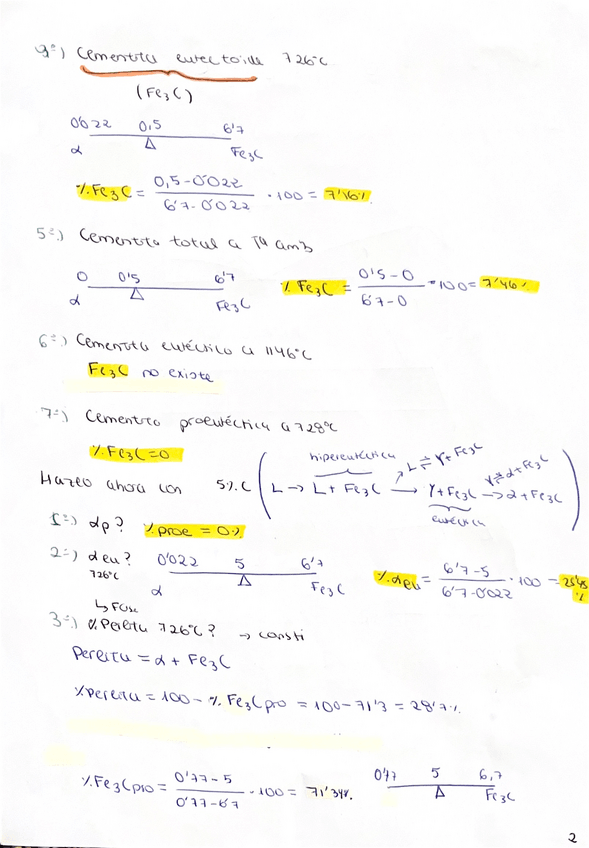 4º) Cementita eutectoide 726ºC
(Fe3C)
0'022 0,5 6'7
α Δ Fe3C
% Fe3C = (0,5 - 0'022) / (6'7 - 0'022) · 100 = 7'16%
5º) Cementita total a Tª amb
0 0'5 6'7
α Δ Fe3C
% Fe3C = (0'5 - 0) / (6'7 - 0) · 100 = 7'46%
6º) Cementita eutéctica a 1146ºC
Fe3C no existe
7º) Cementita proeutéctica a 728ºC
% Fe3C = 0
Hazlo ahora con 5% C
hipereutéctica
L ⇌ γ + Fe3C
γ ⇌ α + Fe3C
( L → L + Fe3C → γ + Fe3C → α + Fe3C )
eutéctica
1º) αp? % proe = 0%
2º) α eu? 726ºC
0'022 5 6'7
α Δ Fe3C
% αeu = (6'7 - 5) / (6'7 - 0'022) · 100 =
3º) % Perlita 726ºC? → consti
Perlita = α + Fe3C
% Perlita = 100 - % Fe3C pro = 100 - 71'3 = 28'7%
% Fe3C pro = (0'77 - 5) / (0'77 - 6'7) · 100 = 71'34%
0'77 5 6,7
Δ Fe3C
2